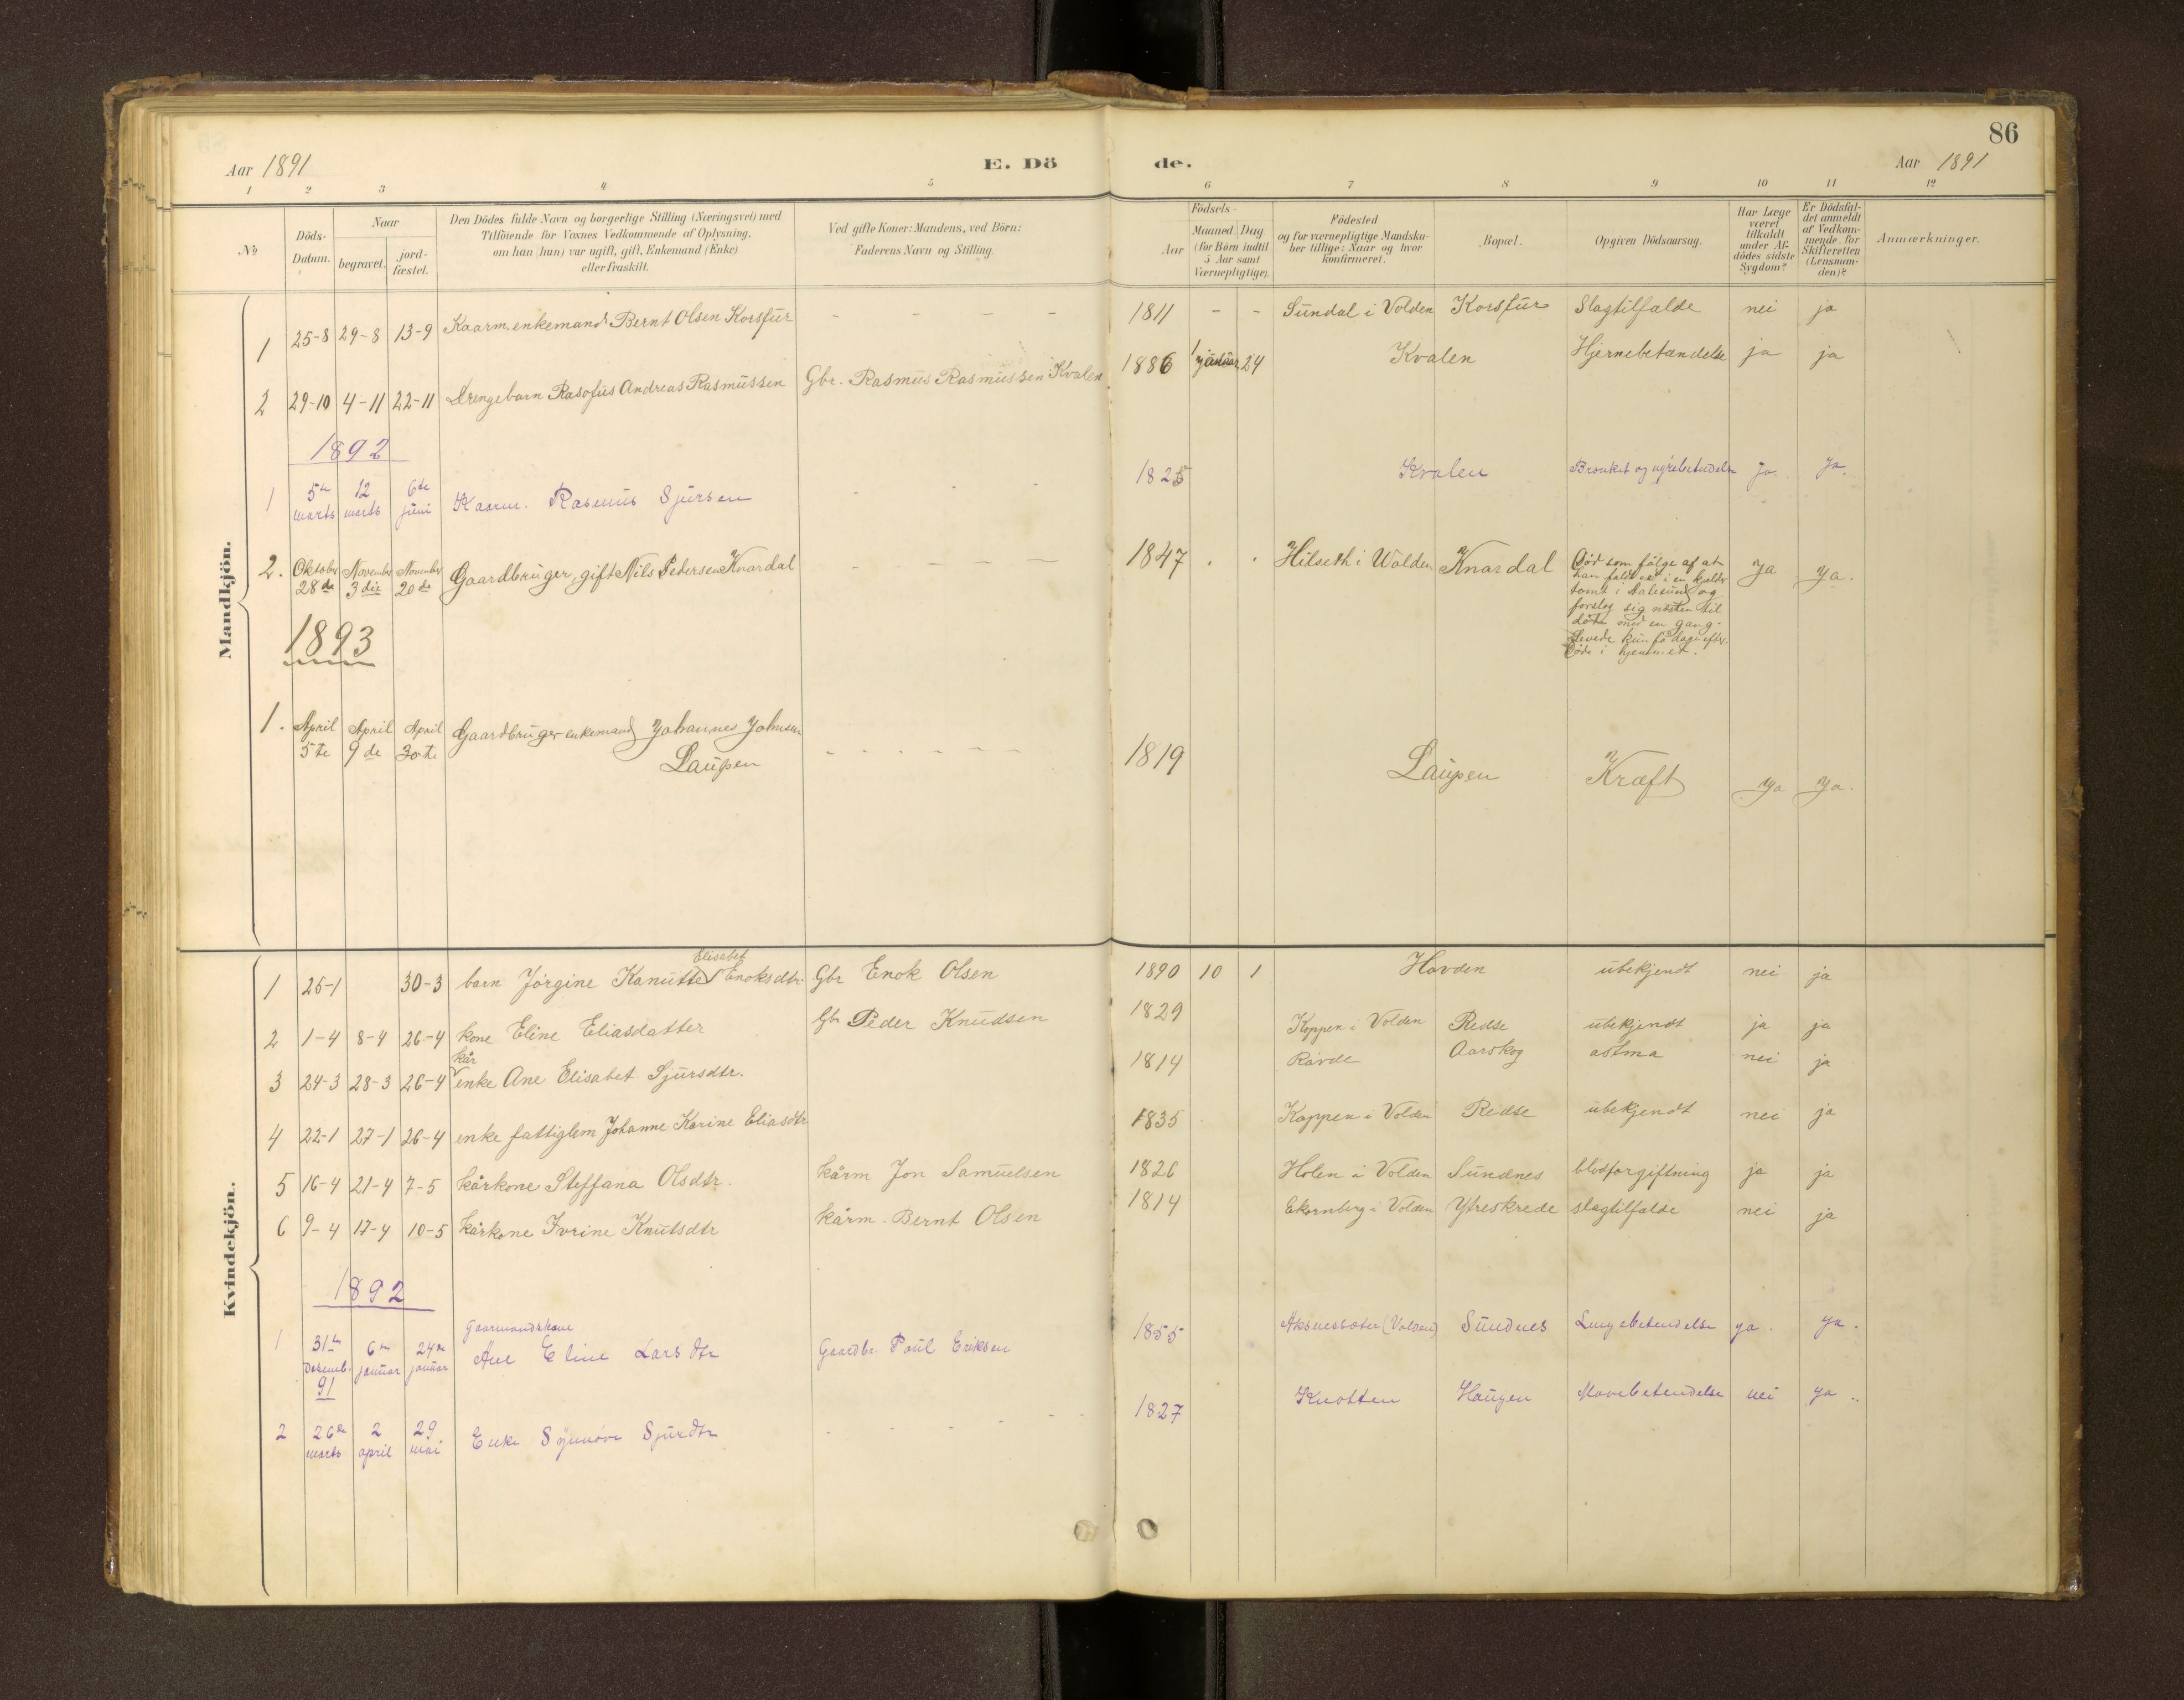 86
Aar 1891 E. Dö de. Aar 1891
1 2 3 4 5 6 7 8 9 10 11 12
№ Döds-Datum. Naar begravet. jord-fæstet. Den Dödes fulde Navn og borgerlige Stilling (Næringsvei) med Tilföiende for Voxnes Vedkommende af Oplysning, om han (hun) var ugift, gift, Enkemand (Enke) eller fraskilt. Ved gifte Koner: Mandens, ved Börn: Faderens Navn og Stilling. Födsels- Aar Maaned. Dag (for Börn indtil 5 Aar samt Værnepligtige). Födested og for værnepligtige Mandskaber tillige: Naar og hvor konfirmeret. Bopæl. Opgiven Dödsaarsag. Har Læge været tilkaldt under Afdödes sidste Sygdom? Er Dödsfaldet anmeldt af Vedkommende for Skifteretten (Lensmanden)? Anmærkninger.
Mandkjön.
1 25-8 29-8 13-9 Kaarm. enkemand. Bernt Olsen Korsfur - - - - 1811 - - Sundal i Volden Korsfur Slagtilfalde nei ja
2 29-10 4-11 22-11 Drengebarn Rasofus Andreas Rasmussen Gbr. Rasmus Rasmussen Kvalen 1886 januar 24 Kvalen Hjernebetændelse ja ja
1892
1 5te marts 12 marts 6te juni Kaarm. Rasmus Sjursen - - - 1825 Kvalen Bronket og nyrebetendelse Ja. Ja.
2. Oktober 28de November 3die November 20de Gaardbruger, gift Nils Pedersen Knardal - - - - 1847 . . Hilseth i Wolden Knardal Död som følge af at
han faldt ned i en kjelder
tomt i Aalesund og
forslog sig næsten til
døde med en gang.
Levede kun få dage efter.
Døde i hjemmet. Ja Ja.
1893
1. April 5te April 9de April 30te Gaardbruger enkemand Johannes Johnsen
Laupen - - - - - - 1819 Laupen Kræft Ja Ja.
Kvindekjön.
1 25-1 30-3 barn Jörgine Kanutte Elisabet Enoksdtr. Gbr Enok Olsen 1890 10 1 Hovden ubekjendt nei ja
2 1-4 8-4 26-4 kone Eline Eliasdatter Gbr Peder Knudsen 1829 Koppen i Volden Redse ubekjendt ja ja
3 24-3 28-3 26-4 kår enke Ane Elisabet Sjursdtr. 1814 Røvde Aarskog astma nei ja
4 22-1 27-1 26-4 enke fattiglem Johanne Karine Eliasdtr 1835 Koppen i Volden Redse ubekjendt nei ja
5 16-4 21-4 7-5 kårkone Steffana Olsdtr. kårm Jon Samuelsen 1826 Holen i Volden Sundnes blodforgiftning ja ja
6 9-4 17-4 10-5 kårkone Ivrine Knutsdtr kårm. Bernt Olsen 1814 Ekornberg i Volden Ytreskrede slagtilfalde nei ja
1892
1 31te Dezemb. 91 6te januar 24de januar Gaarmandskone
Ane Eline Lars dtr Gaardbr. Paul Eriksen 1855 Aksnessæter (Volden) Sundnes Lungebetendelse ja. ja.
2 26de marts 2 april 29 mai Enke Synnöve Sjurdtr - - - - 1827 Knotten Haugen Mavebetendelse nei ja.